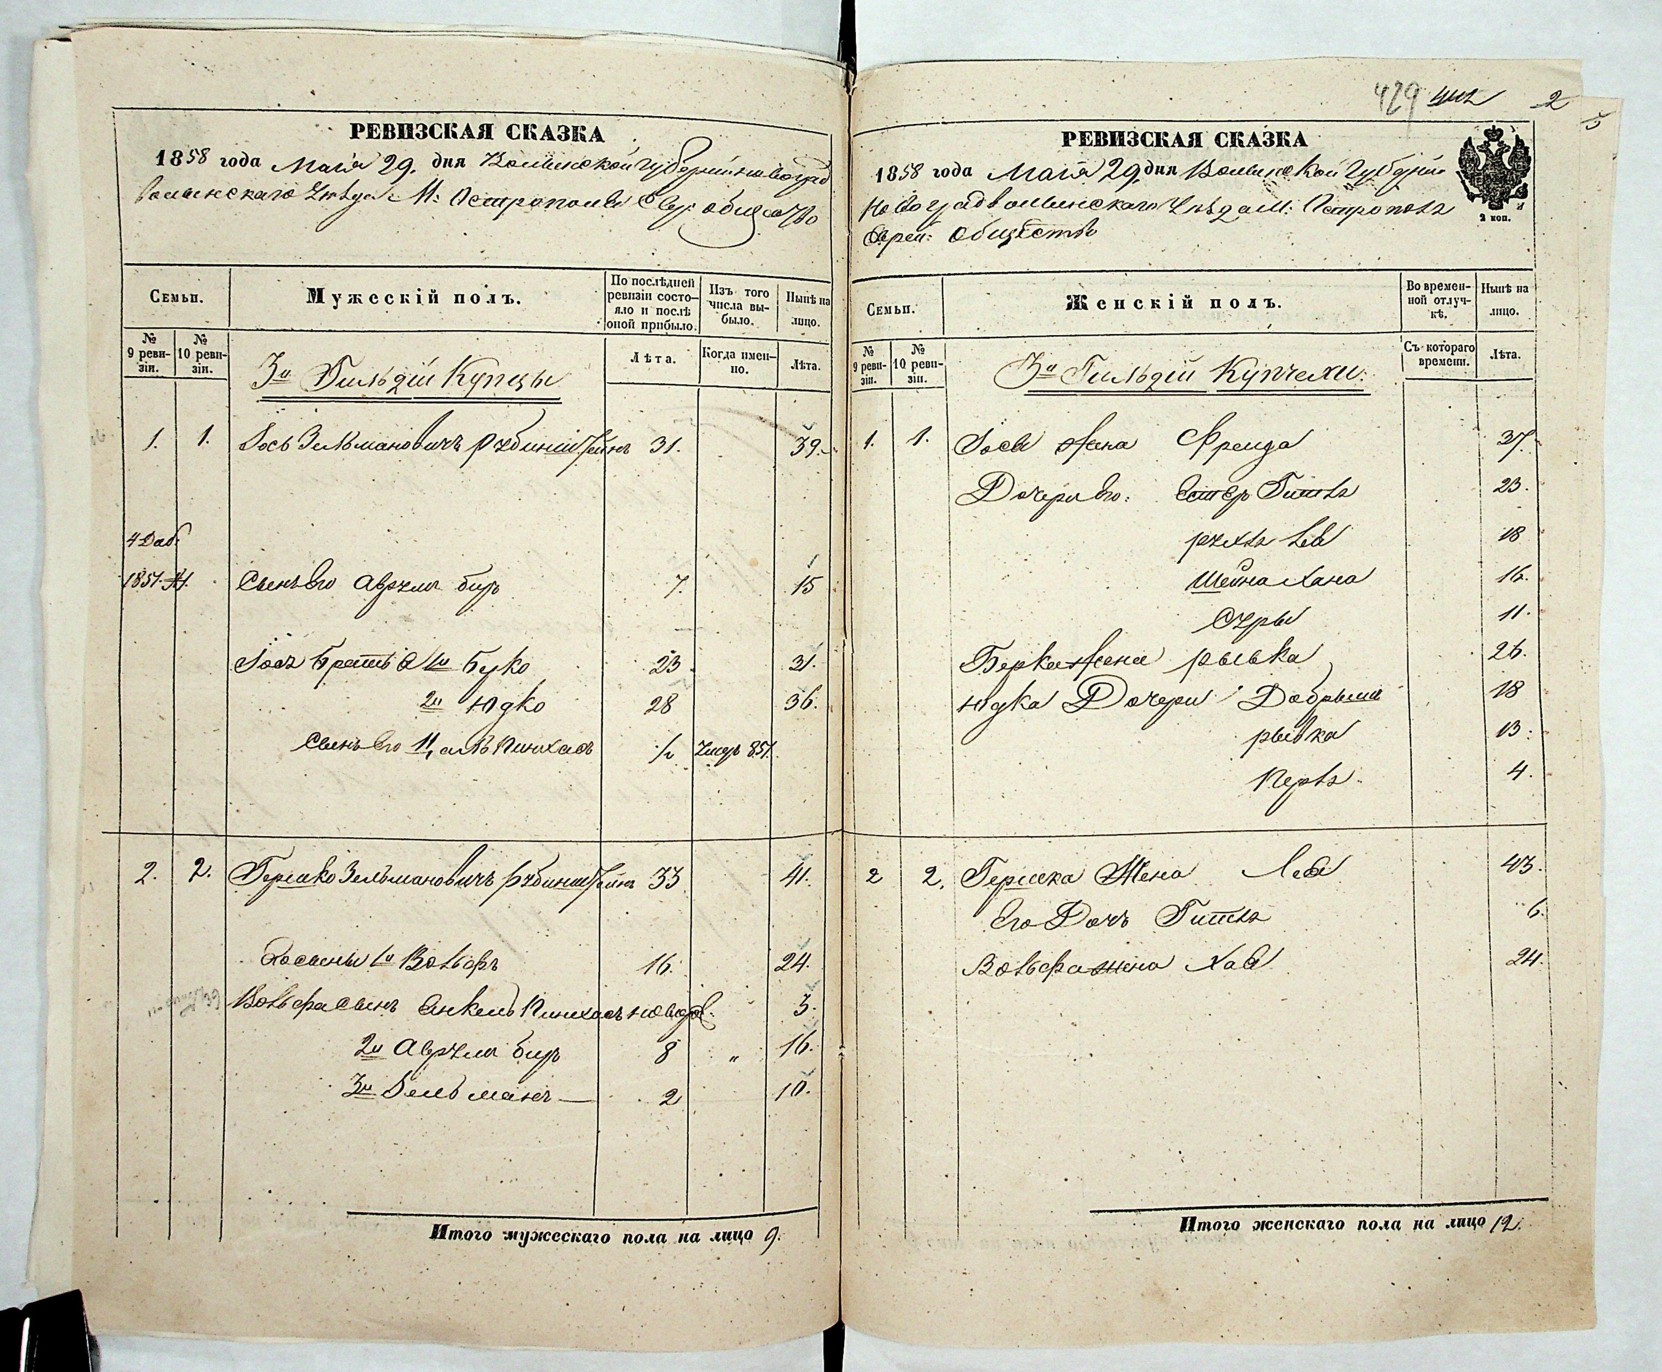 РЕВИЗСКАЯ СКАЗКА
1858 года Маія 29. дня Волынской Губерніи Новоград
волынскаго Уѣзда М: Острополя Евр: общество
Семьи.
Мужескій полъ.
По послѣдней ревизіи состояло и послѣ оной прибыло.
Изъ того числа выбыло.
Нынѣ на лицо.
№ 9 ревизіи.
№ 10 ревизіи.
3й Гильдіи Купцы
Лѣта.
Когда именно.
Лѣта.
1. 1. Іось Зельмановичъ Рубинштейнъ 31. 39.
4 Доб:
1851. Сынъ Его Аврумъ бир 7. 15
Іося Братья 1й Берко 23 31.
2й Юдко 28 36.
Сынъ Его Пинхасъ ½ Умеръ 851.
2. 2. Гершко Зельмановичъ Рубинштейнъ 33 41.
Его сыны 1й Вольфъ 16. 24.
Вольфа сынъ Янкель Пинхасъ новорож. 3.
2й Аврумъ бир 8 „ 16.
3й Зельманъ 2 10.
Итого мужескаго пола на лицо 9.
429 2
РЕВИЗСКАЯ СКАЗКА
1858 года Маія 29. дня Волынской Губерніи
Новоградволынскаго Уѣзда М: Острополя
Еврей: Общества
2 коп.
Семьи.
Женскій полъ.
Во временной отлучкѣ.
Нынѣ на лицо.
№ 9 ревизіи.
№ 10 ревизіи.
3й Гильдіи Купчехи.
Съ котораго времени.
Лѣта.
1. 1. Іося Жена Фрейда 37.
Дочери Его: Естеръ Гитля 23.
Рухля Леа 18
Шейна Хана 16.
Суры 11.
Берка Жена Рывка 26.
Юдка Дочери Добрыш 18
Рывка 13.
Перля 4.
2 2. Гершка Жена Леа 43.
Его Дочь Гитля 6.
Вольфа жена Хая 24.
Итого женскаго пола на лицо 12.